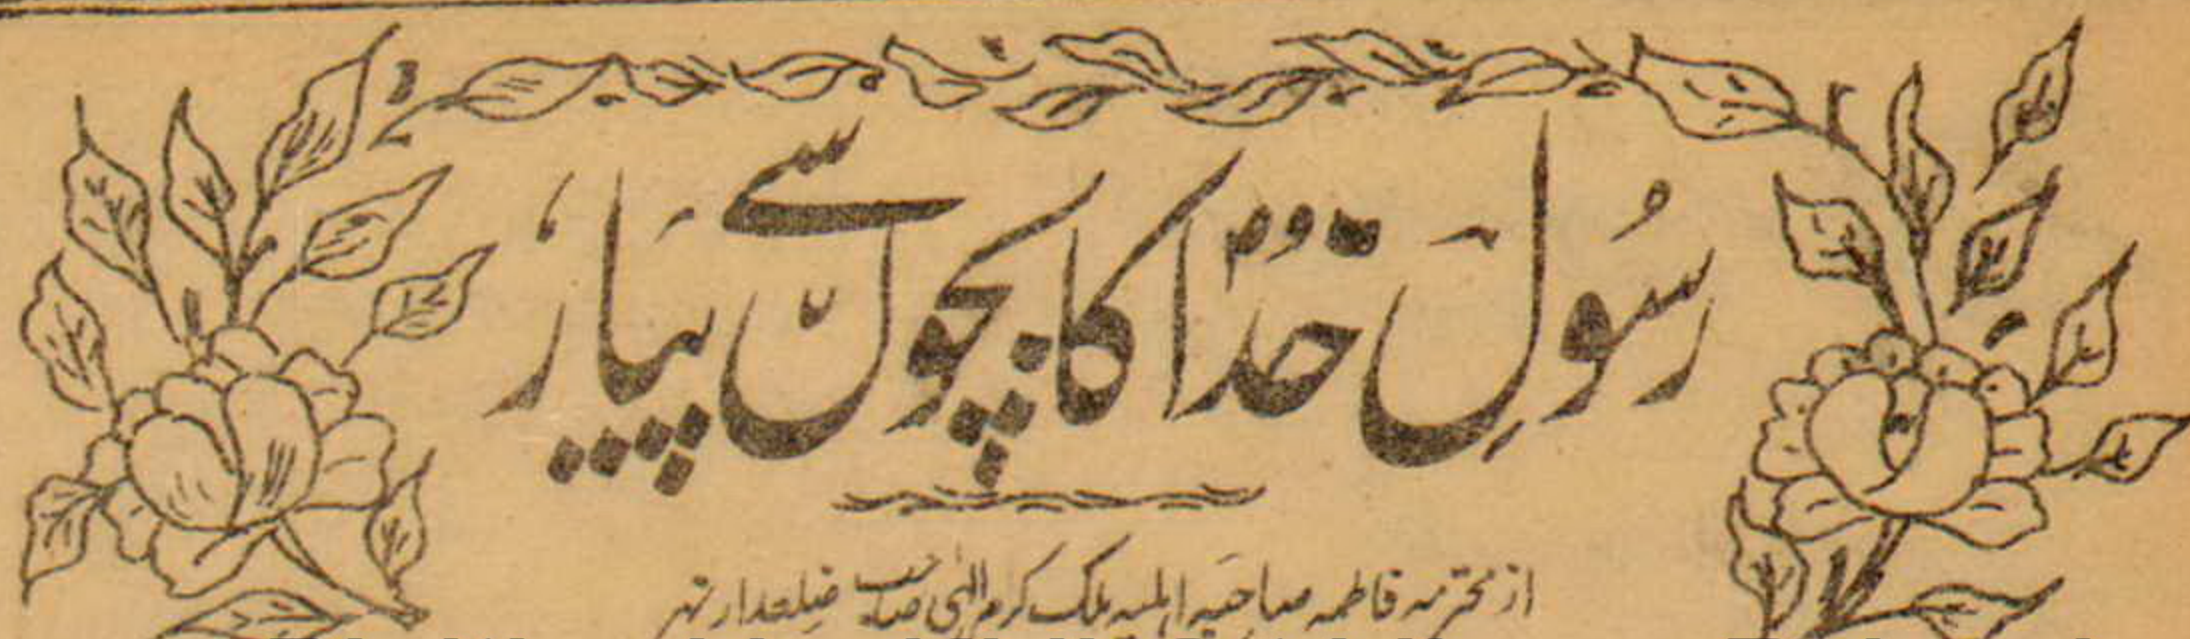 رسُولِ خدا کا بچوں سے پیار
از محترمہ فاطمہ صاحبہ اہلیہ ملک کرم الٰہی صاحب ضلعدار نہر